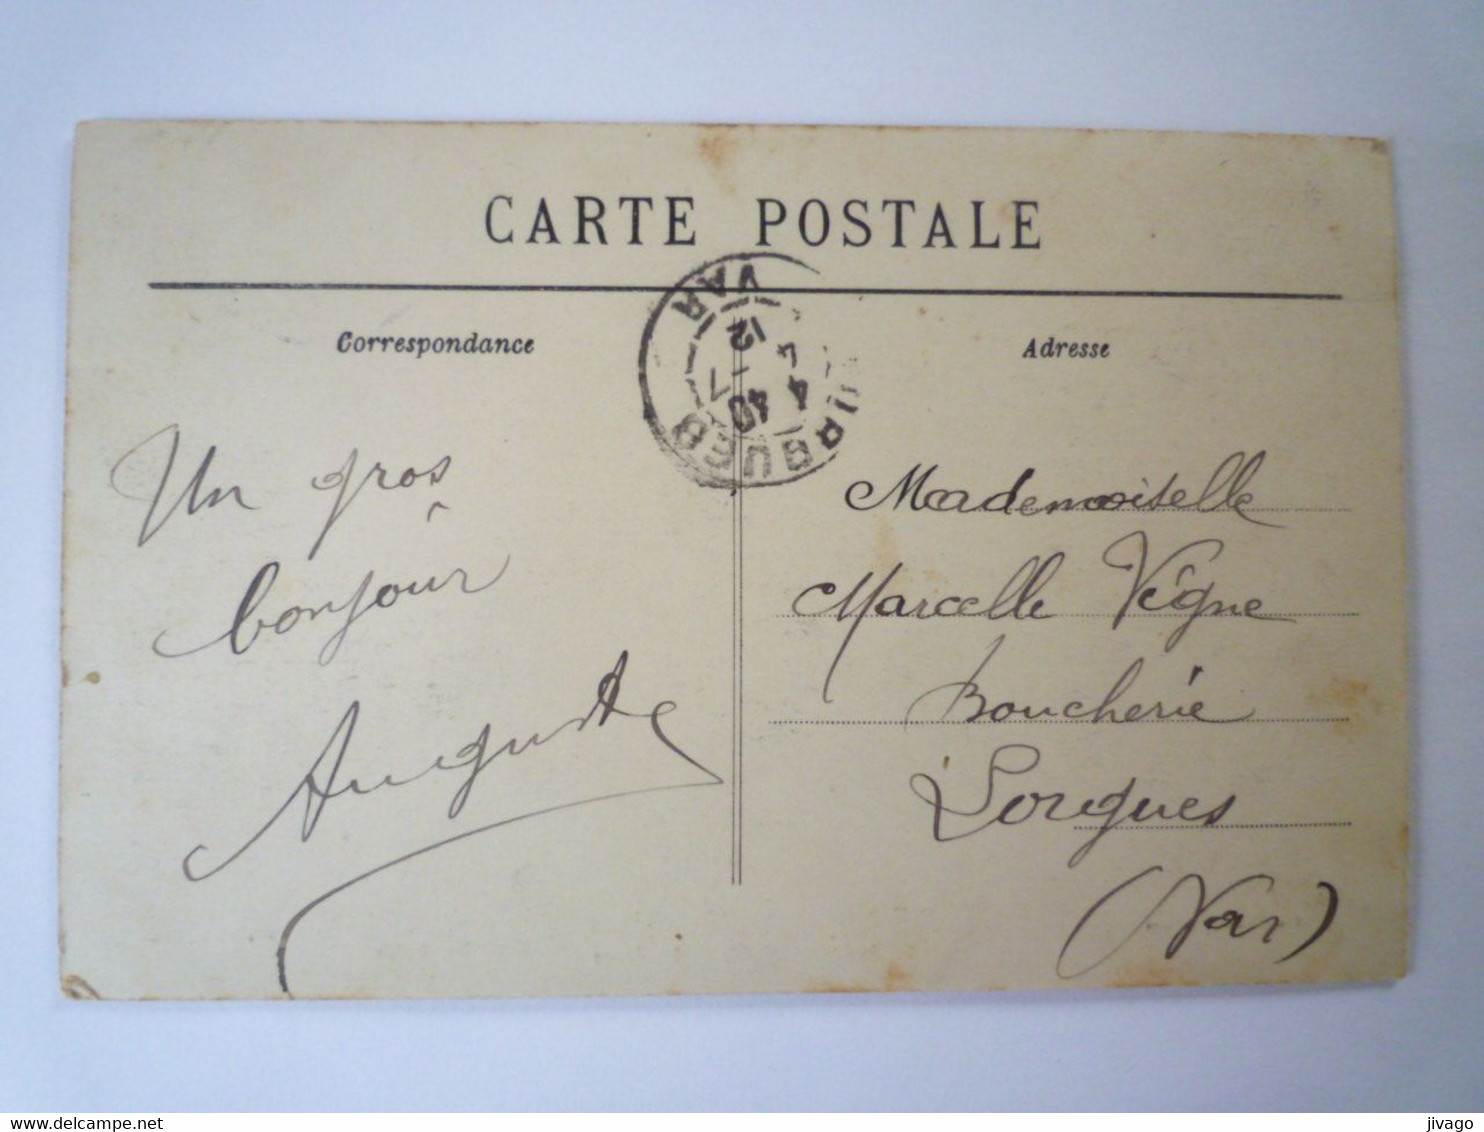 CARTE POSTALE
Correspondance
Adresse
VAR
12
-7
4
40
Un gros
bonjour
Auguste
Mademoiselle
Marcelle Vigne
Boucherie
Lorgues
(Var)
www.delcampe.net
jivago